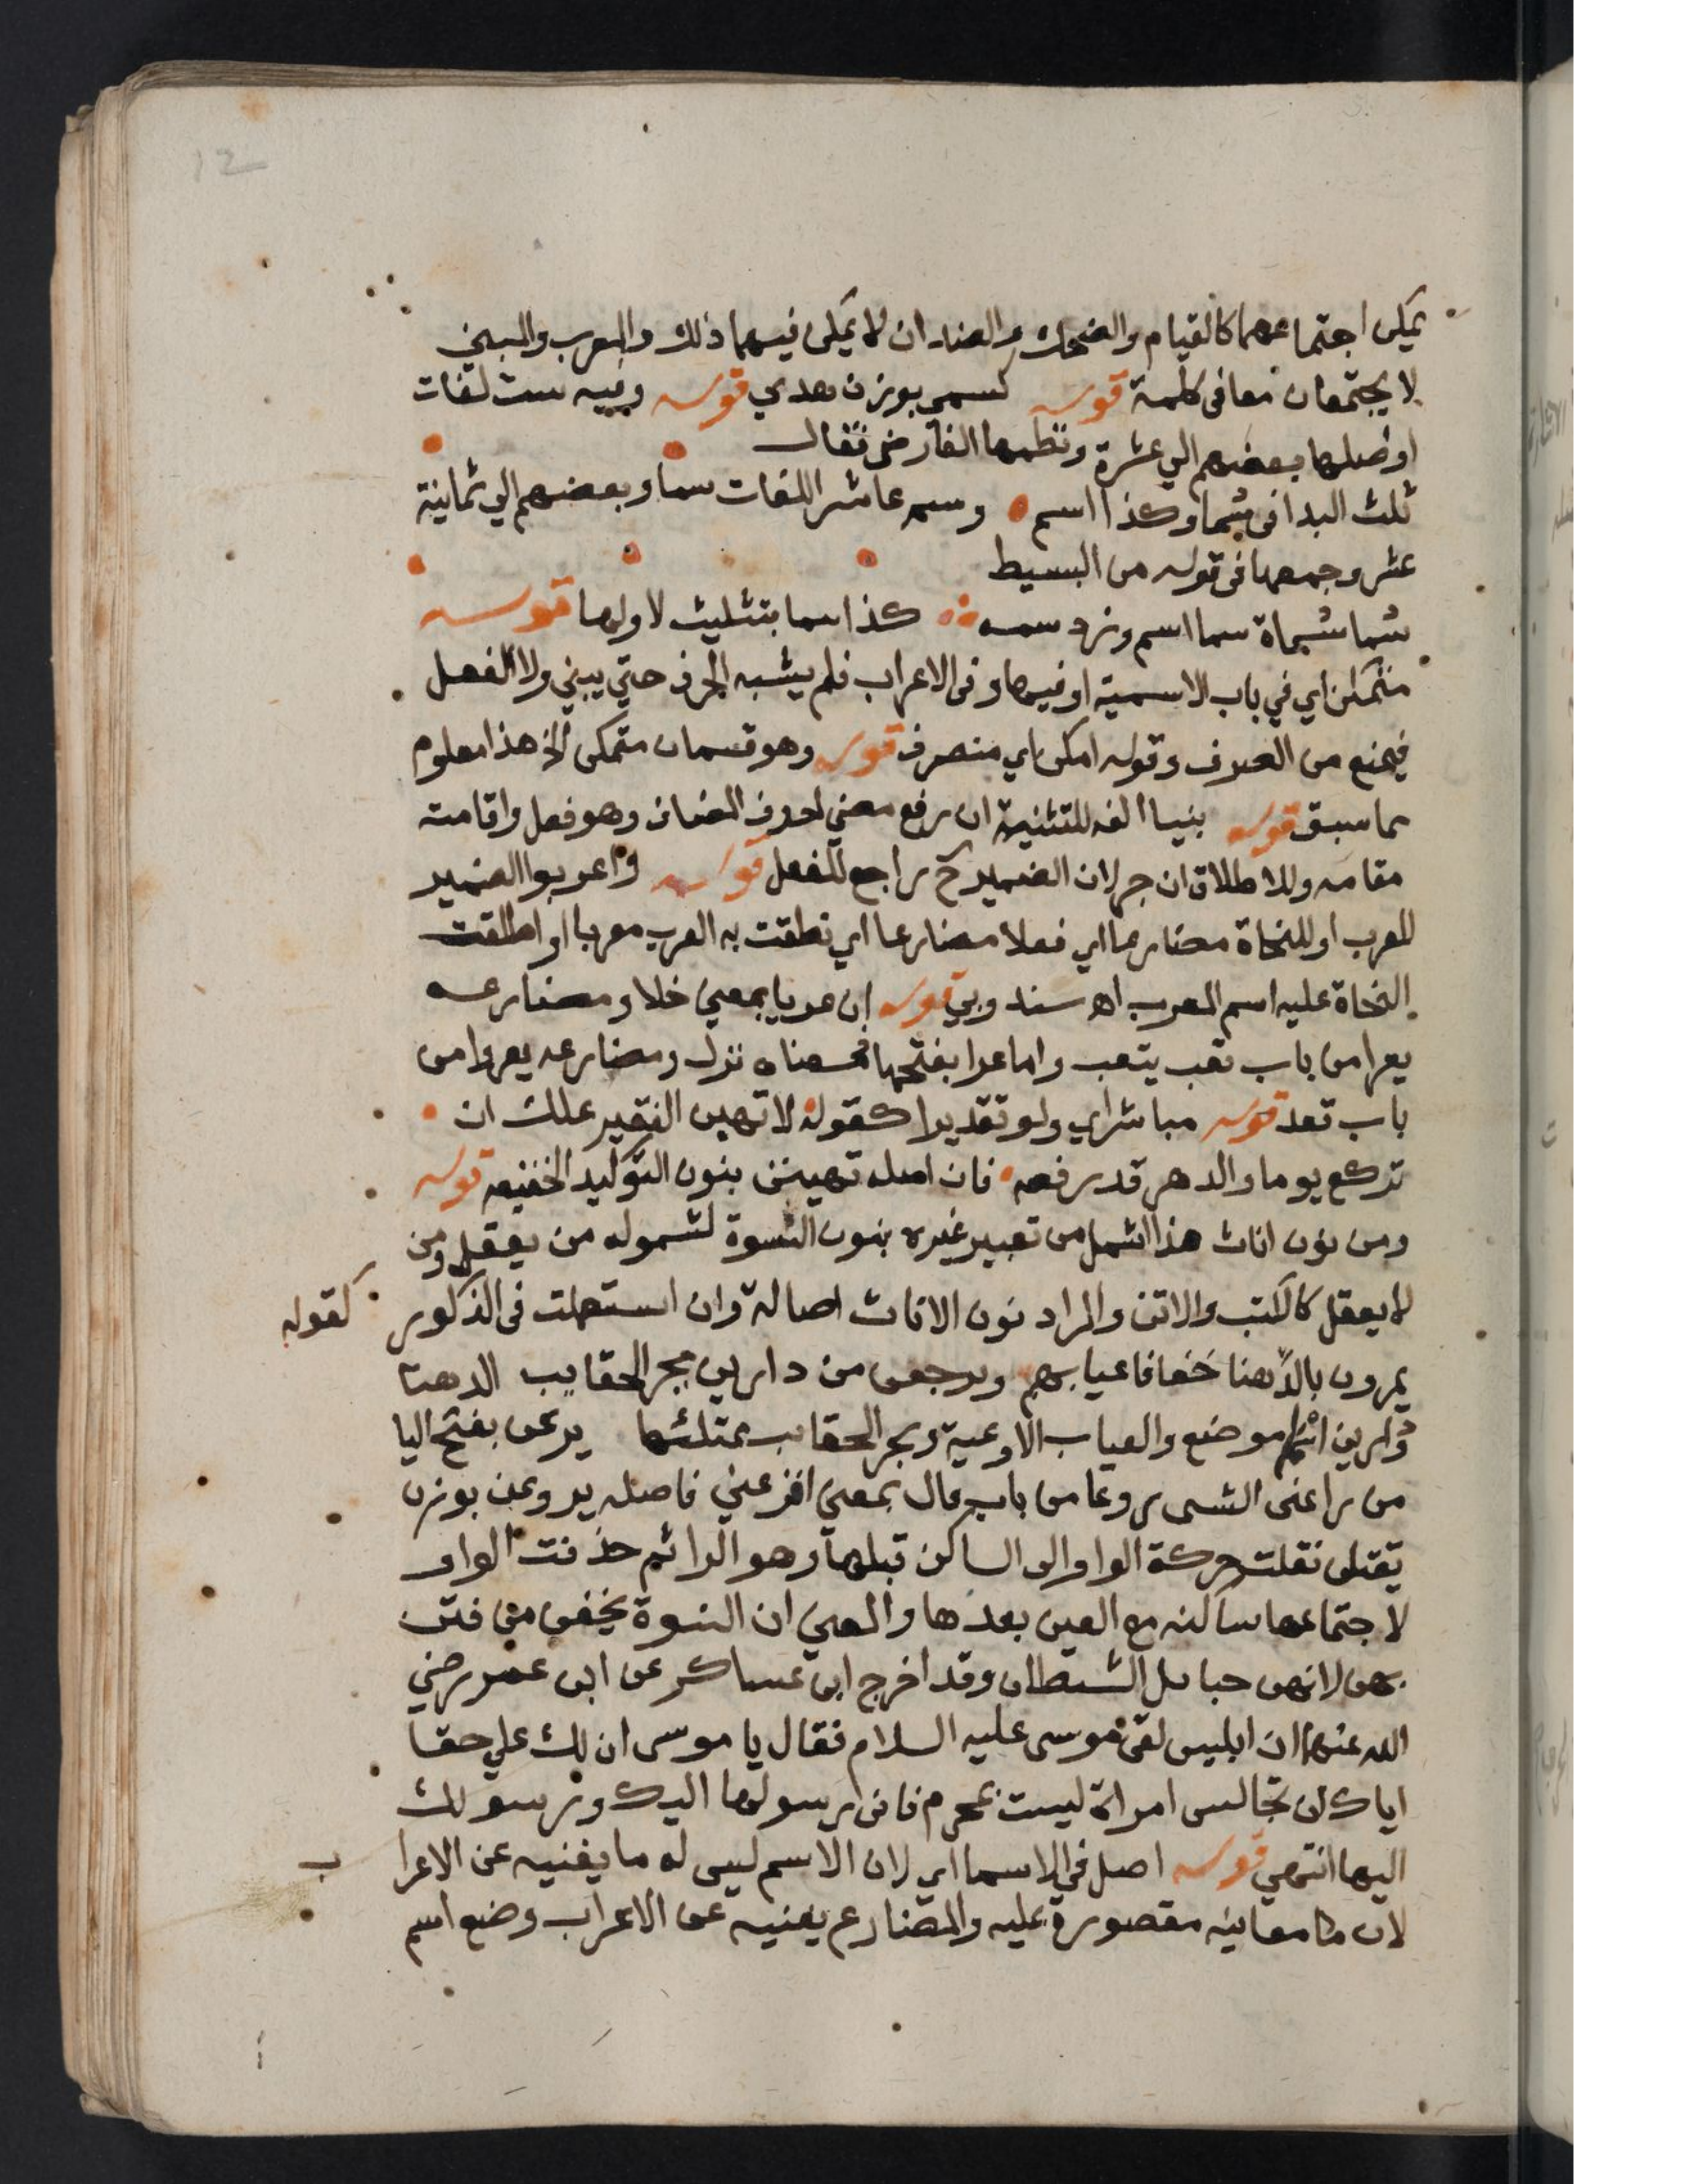 12
يمكن اجتماعهما كالقيام والضحك والضدان لا يمكن فيهما ذلك والمعرب والمبني
لا يجتمعان معا في كلمة قوله كسمي بوزن هدي قوله وفيه ست لغات
اوصلها بعضهم الي عشرة ونظمها الفارضي فقال
ثلث البدا في سما وكذا اسم وسم عاشر اللغات سما وبعضهم الي ثمانية
عشر وجمعها في قوله من البسيط
سما سماة سما اسم وزد سمه كذا سما بتثليث لاولها قوله
متمكن اي في باب الاسمية او فيها وفي الاعراب فلم يشبه الحرف حتي يبني ولا الفعل
فيمنع من الصرف وقوله امكن اي منصرف قوله وهو قسمان متمكن الخ هذا معلوم
مما سبق قوله بنيا الفه للتثنية ان رفع مضي لحذف المضاف وهو فعل واقامته
مقامه وللاطلاق ان جر لان الضمير ح راجع للفعل قوله واعربوا الضمير
للعرب او للنحاة مضارعا اي فعلا مضارعا اي نطقت به العرب معربا او اطلقت
النحاة عليه اسم المعرب اه سندوبي قوله ان عريا بمعني خلا ومضارعه
يعرا من باب تعب يتعب واما عرا بفتحها فمعناه نزل ومضارعه يعروا من
باب قعد قوله مباشر اي ولو تقديرا كقوله لا تهين الفقير علك ان
تركع يوما والدهر قد رفعه فان اصله تهينن بنون التوكيد الخفيفه قوله
ومن نون اناث هذا اشمل من تعبير غيره بنون النسوة لشموله من يعقل ومن
لا يعقل كالكتب والاتن والمراد نون الاناث اصالة وان استعملت في الذكور كقوله
يمرون بالدهنا خفافا عيابهم ويرجعن من دارين بجر الحقايب الدهنا
ودارين اسم موضع والعياب الاوعية وبجر الحقايب ممتلئها يرعن بفتح اليا
من راعني الشي روعا من باب قال بمعني افزعني فاصله يروعن بوزن
يقتلن نقلت حركة الواو الي الساكن قبلها وهو الرا ثم حذفت الواو
لاجتماعها ساكنه مع العين بعدها والمعني ان النسوة يخفن من فتن
بهن لانهن حبايل الشيطان وقد اخرج ابن عساكر عن ابن عمر رضي
الله عنهما ان ابليس لقي موسي عليه السلام فقال يا موسى ان لك علي حقا
اياك ان تجالس امراة ليست بمحرم فاني رسولها اليك ورسولك
اليها انتهي قوله اصل في الاسما اي لان الاسم ليس له ما يغنيه عن الاعرا ب
لان معانيه مقصورة عليه والمضارع يغنيه عن الاعراب وضع اسم